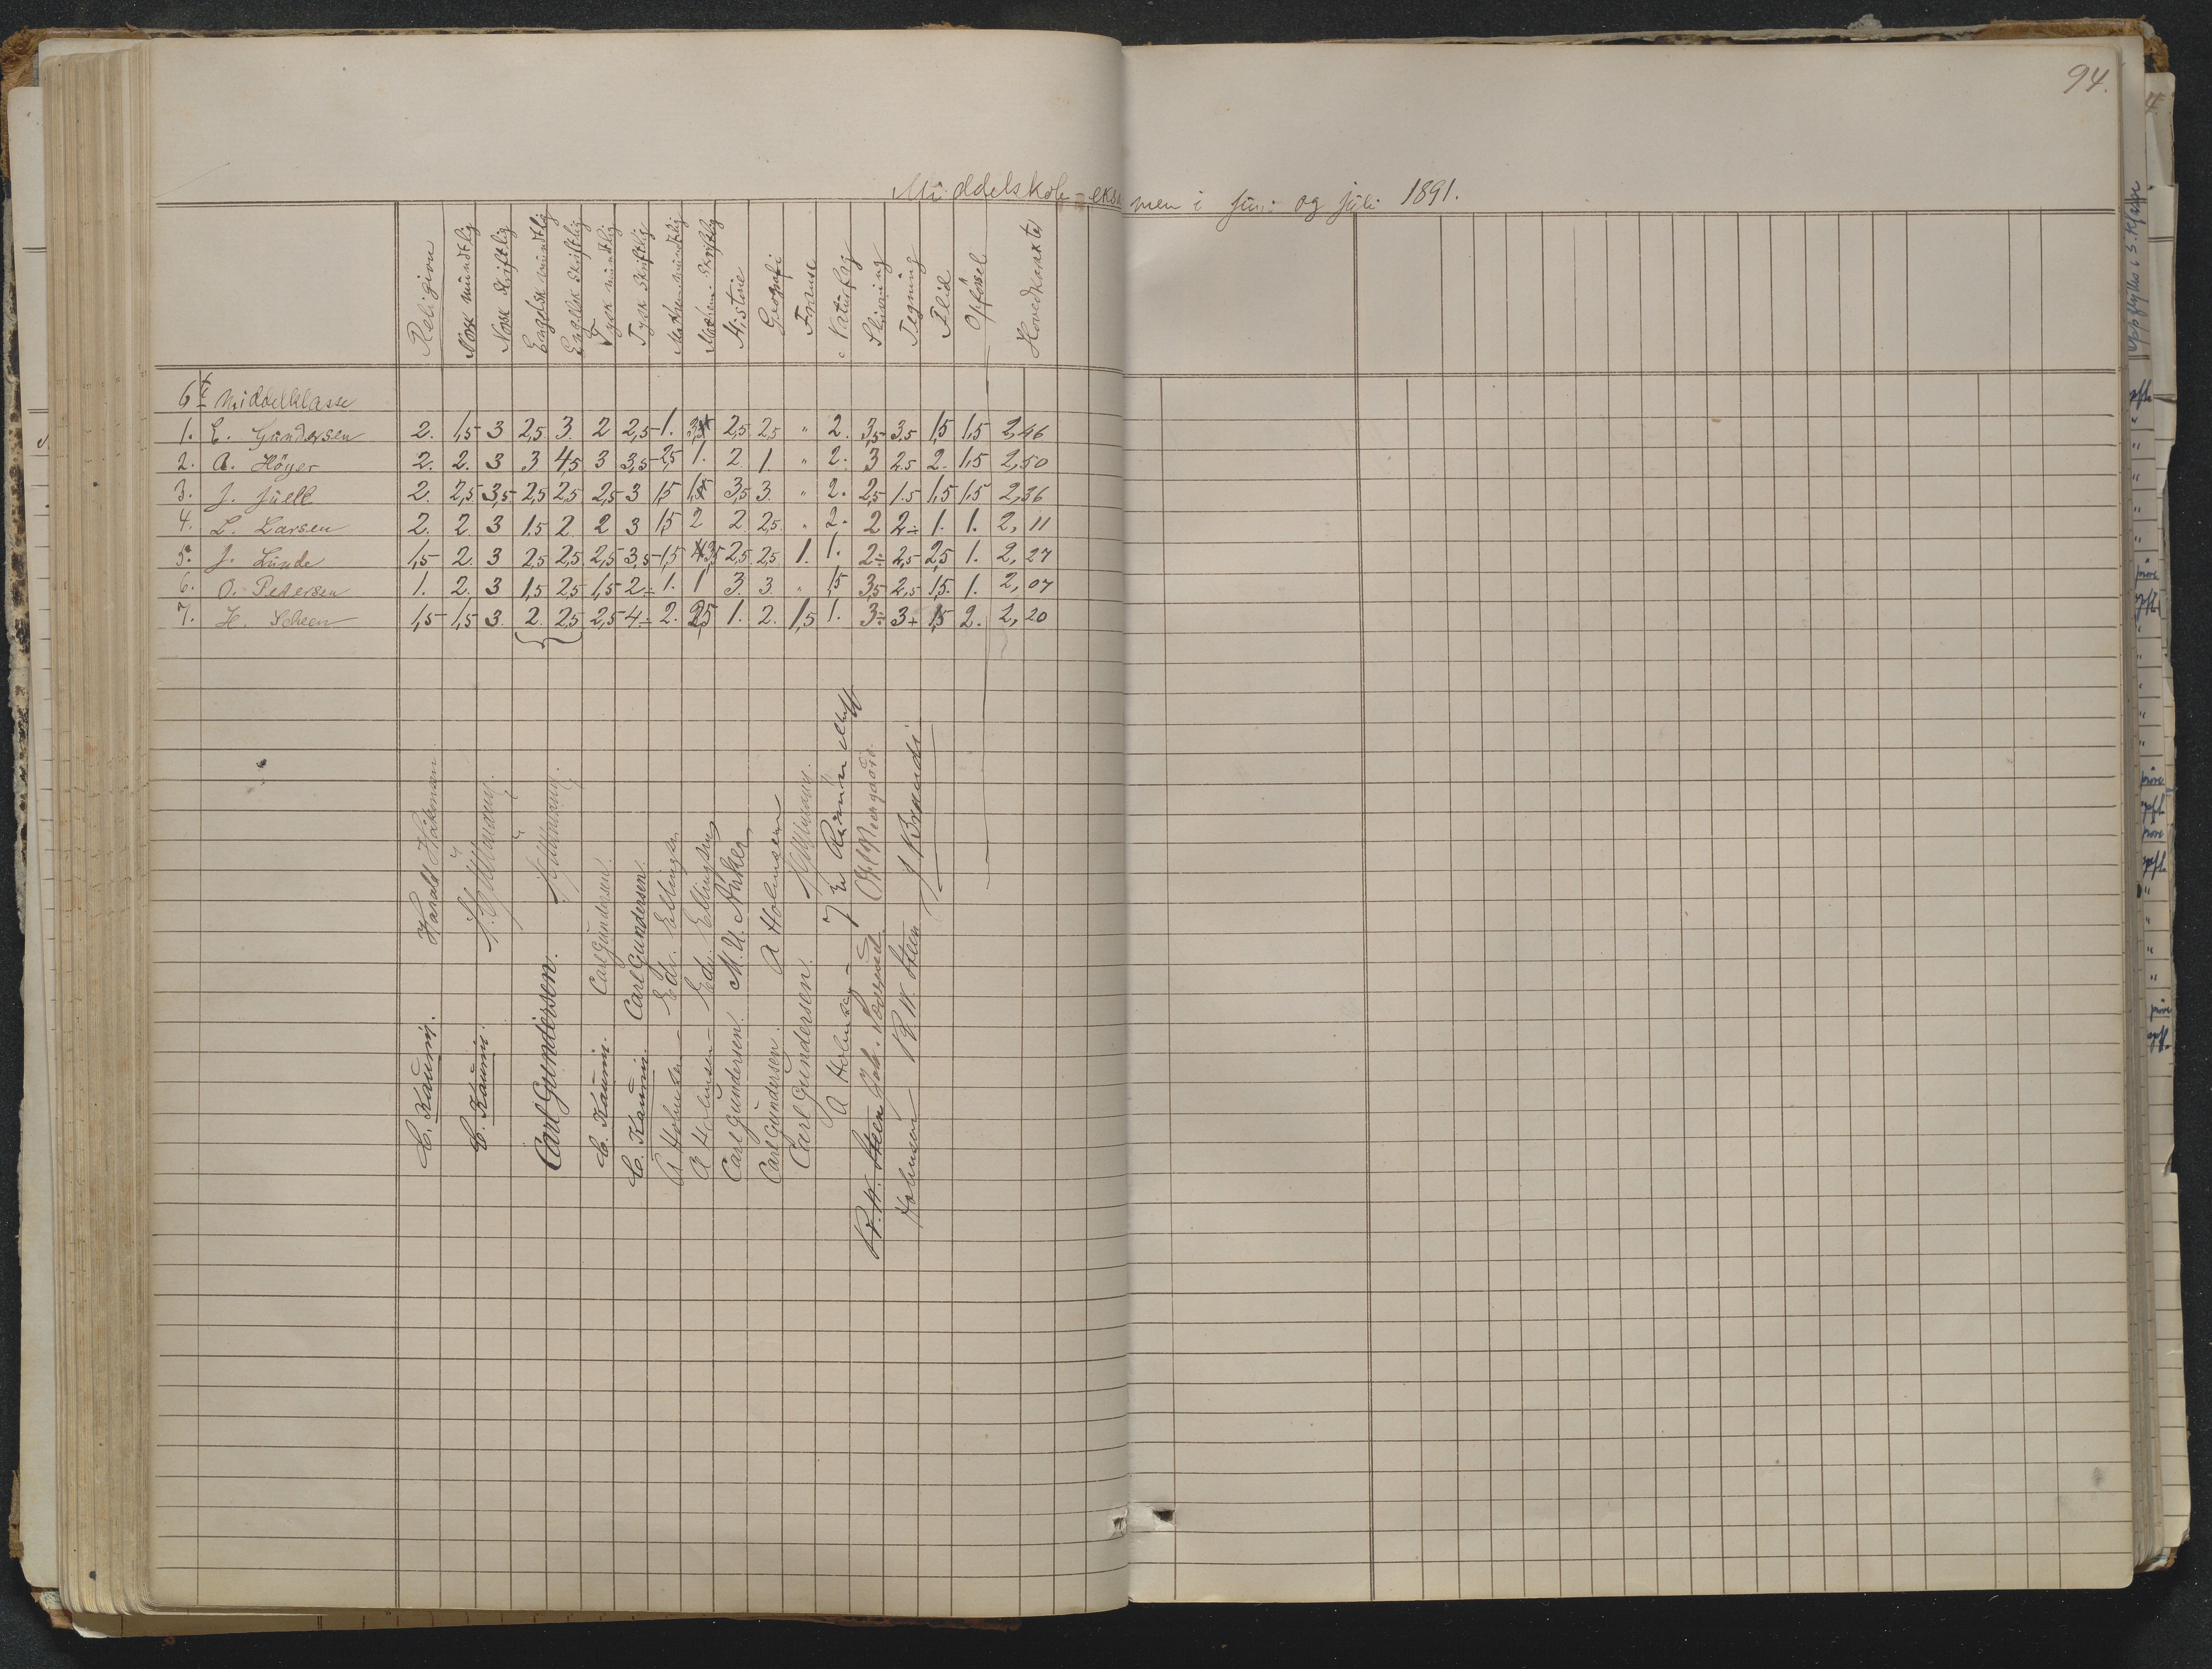 94.
Middelskole-eksamen i juni og juli 1891.
Religion
Norsk mundtlig
Norsk skriftlig
Engelsk mundtlig
Engelsk skriftlig
Tysk mundtlig
Tysk skriftlig
Mathem. mundtlig
Mathem. skriftlig
Historie
Geografi
Fransk
Naturfag
Skrivning
Tegning
Flid
Opførsel
Hovedkarakter
6te Middelklasse
1. E. Gundersen 2. 1,5 3 2,5 3. 2 2,5 1. 3,5 2,5 2,5 " 2. 3,5 3,5 1,5 1,5 2,46
2. A. Höyer 2. 2. 3 3 4,5 3 3,5 2,5 1. 2 1. " 2. 3 2,5 2. 1,5 2,50
3. J. Juell 2. 2,5 3,5 2,5 2,5 2,5 3 1,5 1,5 3,5 3. " 2. 2,5 1,5 1,5 1,5 2,36
4. L. Larsen 2. 2 3 1,5 2. 2 3 1,5 2 2. 2,5 " 2. 2 2÷ 1. 1. 2,11
5. J. Lunde 1,5 2. 3 2,5 2,5 2,5 3,5 1,5 3,5 2,5 2,5 1. 1. 2÷ 2,5 2,5 1. 2,27
6. O. Pedersen 1. 2. 3 1,5 2,5 1,5 2÷ 1. 1 3. 3. " 1,5 3,5 2,5 1,5. 1. 2,07
7. H. Scheen 1,5 1,5 3. 2. 2,5 2,5 4÷ 2. 2,5 1. 2. 1,5 1. 3÷ 3+ 1,5 2. 2,20
C. Kaurin. Harald
C. Kaurin.
Carl Gundersen.
C. Kaurin. Carl Gundersen.
C. Kaurin. Carl Gundersen.
A Holmsen Edv. Ellingsen
A Holmsen Edv. Ellingsen
Carl Gundersen. M. U.
Carl Gundersen. A Holmsen
Carl Gundersen.
A Holmsen
K. W. Steen Joh.
Holmsen K. W. Steen